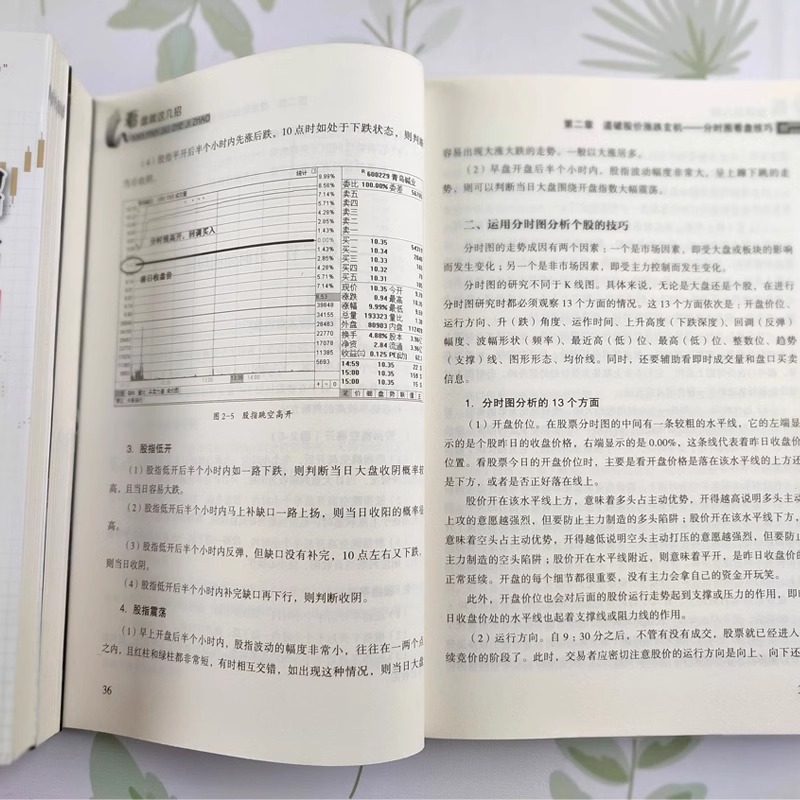 看
盘就这几招
（4）股指平开后半个小时内先涨后跌，10点时如处于下跌状态，则判
当日收阴。
统计
9.99%
8.56%
7.14%
5.71%
4.28%
2.85%
1.43%
0.00%
1.43%
2.85%
4.28%
5.71%
7.14%
分时线高开，回调买入
昨日收盘价
9.53
39848
34155
28463
22770
17078
11385
5693
R 600229 青岛碱业
委比 100.00% 委差
卖五
卖四
卖三
卖二
卖一
买一 10.35
买二 10.34
买三 10.33
买四 10.32
买五 10.31
现价 10.35 今开
涨跌 0.94 最高
涨幅 9.99% 最低
总量 193323 量比
外盘 80903 内盘
换手 4.88% 股本
净资 2.84 流通
收益㈢ 0.125 PE(动)
14:59 10.35
15:00 10.35
15:00 10.35
笔 价 细 盘 势 联 值
图 2-5 股指跳空高开
3. 股指低开
（1）股指低开后半个小时内如一路下跌，则判断当日大盘收阴概率较
高，且当日容易大跌。
（2）股指低开后半个小时内马上补缺口一路上扬，则当日收阳的概率
高。
（3）股指低开后半个小时内反弹，但缺口没有补完，10点左右又下跌，
则当日收阴。
（4）股指低开后半个小时内补完缺口再下行，则判断收阴。
4. 股指震荡
（1）早上开盘后半个小时内，股指波动的幅度非常小，往往在一两个点
之内，且红柱和绿柱都非常短，有时相互交错，如出现这种情况，则当日大盘
36
第二章 道破股价涨跌玄机——分时图看盘技巧
容易出现大涨大跌的走势。一般以大涨居多。
（2）早盘开盘后半个小时内，股指波动幅度非常大，呈上蹿下跳的走
势，则可以判断当日大盘围绕开盘指数大幅震荡。
二、运用分时图分析个股的技巧
分时图的走势成因有两个因素：一个是市场因素，即受大盘或板块的影响
而发生变化；另一个是非市场因素，即受主力控制而发生变化。
分时图的研究不同于K线图。具体来说，无论是大盘还是个股，在进行
分时图研究时都必须观察13个方面的情况。这13个方面依次是：开盘价位、
运行方向、升（跌）角度、运作时间、上升高度（下跌深度）、回调（反弹）
幅度、波幅形状（频率）、最近高（低）位、最高（低）位、整数位、趋势
（支撑）线、图形形态、均价线。同时，还要辅助看即时成交量和盘口买卖
信息。
1. 分时图分析的13个方面
（1）开盘价位。在股票分时图的中间有一条较粗的水平线，它的左端显
示的是个股昨日的收盘价格，右端显示的是0.00%，这条线代表着昨日收盘价
位置。看股票今日的开盘价位时，主要是看开盘价格是落在该水平线的上方还
是下方，或者是否正好落在线上。
股价开在该水平线上方，意味着多头占主动优势，开得越高说明多头主动
上攻的意愿越强烈，但要防止主力制造的多头陷阱；股价开在该水平线下方，
意味着空头占主动优势，开得越低说明空头主动打压的意愿越强烈，但要防止
主力制造的空头陷阱；股价开在水平线附近，则意味着平开，是昨日收盘价的
正常延续。开盘的每个细节都很重要，没有主力会拿自己的资金开玩笑。
此外，开盘价位也会对后面的股价运行走势起到支撑或压力的作用，即昨
日收盘价处的水平线也起着支撑线或阻力线的作用。
（2）运行方向。自9：30分之后，不管有没有成交，股票就已经进入
续竞价的阶段了。此时，交易者应密切注意股价的运行方向是向上、向下还